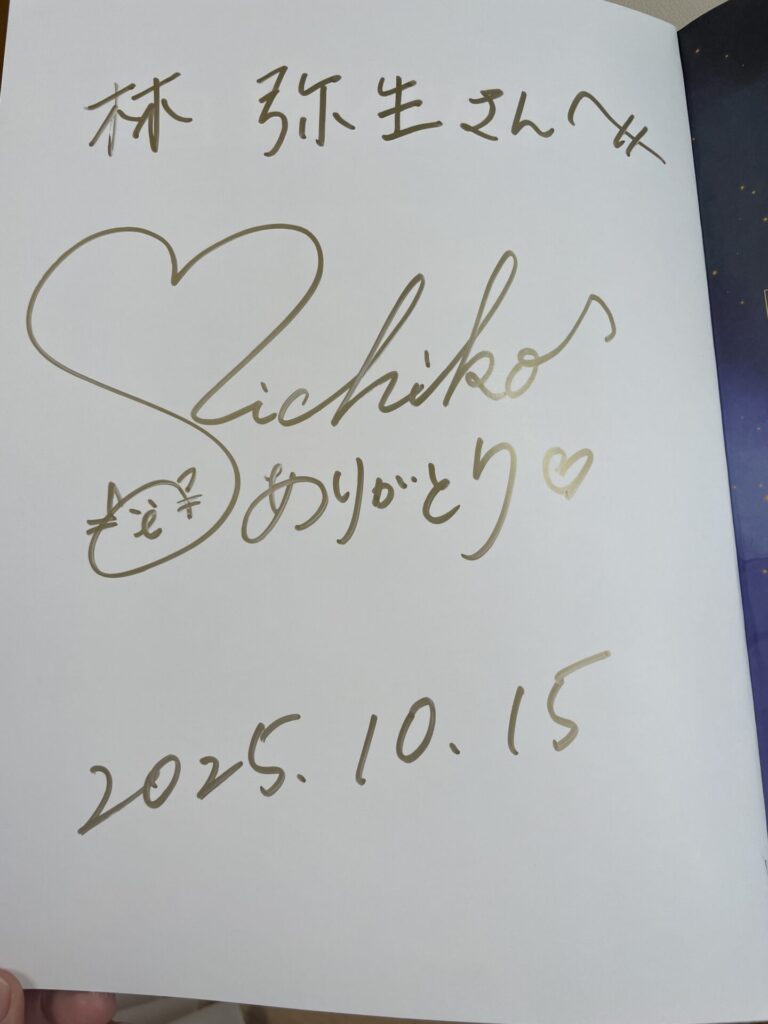 林 弥生さんへ
Michiko
ありがとう♡
2025.10.15